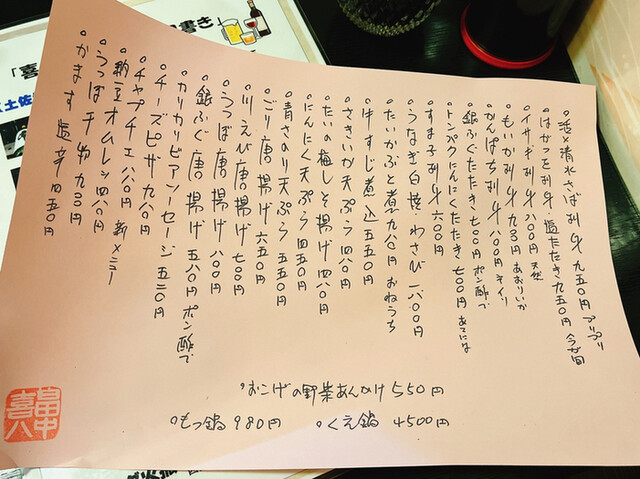 ○活〆清水さば刺身 九五〇円 プリプリ
○はがつを刺身 塩たたき 九五〇円 今が旬
○イサキ刺身 八〇〇円 天然
○もいか刺身 九三〇円 あおりいか
○かんぱち刺身 八〇〇円 キイリ
○銀ふぐたたき 七〇〇円 ポン酢で
○トンペクにんにくたたき 七〇〇円
○すま子刺身 六〇〇円
○うなぎ白焼 わさび 一八〇〇円
○たいかぶと煮 九八〇円 おねうち
○牛すじ煮込 五五〇円
○さきいか天ぷら 四八〇円
○たいの梅しそ揚げ 四八〇円
○にんにく天ぷら 四五〇円
○青さのり天ぷら 五五〇円
○ごり唐揚げ 六五〇円
○川えび唐揚げ 七〇〇円
○うつぼ唐揚げ 八〇〇円
○銀ふぐ唐揚げ 五八〇円 ポン酢で
○カリカリビアンソーセージ 五二〇円
○チーズピザ 九八〇円
○チャプチェ 六八〇円 新メニュー
○納豆オムレツ 四八〇円
○うつぼ干物 九三〇円
○かます塩辛 四五〇円
○おこげの野菜あんかけ 550円
○もつ鍋 980円 ○くえ鍋 4500円
畠中
喜八
「喜
書き
土佐